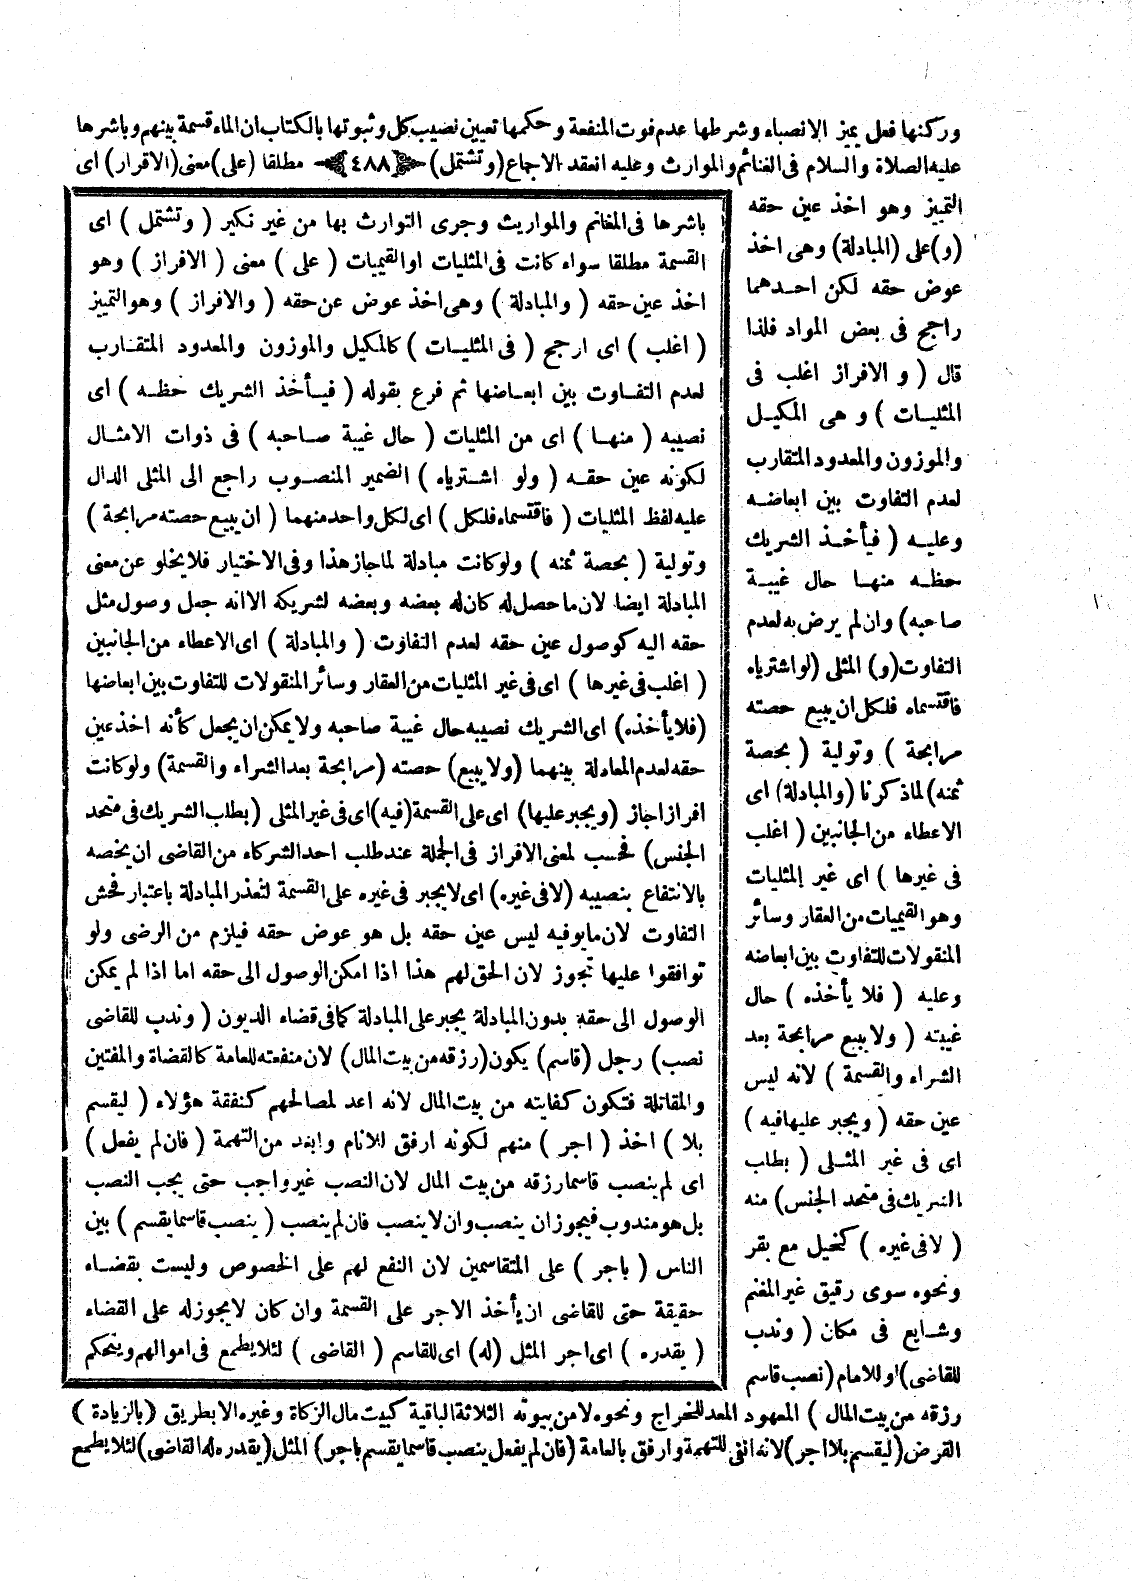 وركنها فعل يميز الانصباء وشرطها عدم فوت المنفعة وحكمها تعيين نصيب كل وثبوتها بالكتاب ان الماء قسمة بينهم وباشرها
عليه الصلاة والسلام فى الغنائم والموارث وعليه انعقد الاجماع (وتشتمل) ﴿٤٨٨﴾ مطلقا (على) معنى (الاقرار) اى
التميز وهو اخذ عين حقه
(و)على (المبادلة) وهى اخذ
عوض حقه لكن احدهما
راجح فى بعض المواد فلذا
قال ( و الافراز اغلب فى
المثليات ) و هى المكيل
والموزون والمعدود المتقارب
لعدم التفاوت بين ابعاضه
وعليه ( فيأخذ الشريك
حظه منها حال غيبة
صاحبه) وان لم يرض به لعدم
التفاوت (و) المثلى (لو اشترياه
فاقتسماه فلكل ان يبيع حصته
مرابحة ) وتولية ( بحصة
ثمنه) لما ذكرنا (والمبادلة) اى
الاعطاء من الجانبين ( اغلب
فى غيرها ) اى غير المثليات
وهو القيميات من العقار وسائر
المنقولات للتفاوت بين ابعاضه
وعليه ( فلا يأخذه ) حال
غيبته ( ولا يبيع مرابحة بعد
الشراء والقسمة ) لانه ليس
عين حقه ( ويجبر عليها فيه )
اى فى غير المثلى ( بطلب
الشريك فى متحد الجنس) منه
( لا فى غيره ) كخيل مع بقر
ونحوه سوى رقيق غير المغنم
وشايع فى مكان ( وندب
للقاضى) او للامام (نصب قاسم
باشرها فى المغانم والمواريث وجرى التوارث بها من غير نكير ( وتشتمل ) اى
القسمة مطلقا سواء كانت فى المثليات او القيميات ( على ) معنى ( الافراز ) وهو
اخذ عين حقه ( والمبادلة ) وهى اخذ عوض عن حقه ( والافراز ) وهو التميز
( اغلب ) اى ارجح ( فى المثليات ) كالمكيل والموزون والمعدود المتقارب
لعدم التفاوت بين ابعاضها ثم فرع بقوله ( فيأخذ الشريك حظه ) اى
نصيبه ( منها ) اى من المثليات ( حال غيبة صاحبه ) فى ذوات الامثال
لكونه عين حقه ( ولو اشترياه ) الضمير المنصوب راجع الى المثلى الدال
عليه لفظ المثليات ( فاقتسماه فلكل ) اى لكل واحد منهما ( ان يبيع حصته مرابحة )
وتولية ( بحصة ثمنه ) ولو كانت مبادلة لما جاز هذا وفى الاختيار فلا يخلو عن معنى
المبادلة ايضا لان ما حصل له كان له بعضه وبعضه لشريكه الا انه جعل وصول مثل
حقه اليه كوصول عين حقه لعدم التفاوت ( والمبادلة ) اى الاعطاء من الجانبين
( اغلب فى غيرها ) اى فى غير المثليات من العقار وسائر المنقولات للتفاوت بين ابعاضها
(فلا يأخذه) اى الشريك نصيبه حال غيبة صاحبه ولا يمكن ان يجعل كأنه اخذ عين
حقه لعدم المعادلة بينهما (ولا يبيع) حصته (مرابحة بعد الشراء والقسمة) ولو كانت
افرازا جاز (ويجبر عليها) اى على القسمة (فيه) اى فى غير المثلى (بطلب الشريك فى متحد
الجنس) فحسب لمعنى الافراز فى الجملة عند طلب احد الشركاء من القاضى ان يخصه
بالانتفاع بنصيبه (لا فى غيره) اى لا يجبر فى غيره على القسمة لتعذر المبادلة باعتبار فحش
التفاوت لان ما يوفيه ليس عين حقه بل هو عوض حقه فيلزم من الرضى ولو
توافقوا عليها تجوز لان الحق لهم هذا اذا امكن الوصول الى حقه اما اذا لم يمكن
الوصول الى حقه بدون المبادلة يجبر على المبادلة كما فى قضاء الديون ( وندب للقاضى
نصب) رجل (قاسم) يكون (رزقه من بيت المال) لان منفعته للعامة كالقضاة والمفتين
والمقاتلة فتكون كفايته من بيت المال لانه اعد لمصالحهم كنفقة هؤلاء ( ليقسم
بلا ) اخذ ( اجر ) منهم لكونه ارفق للانام وابعد من التهمة ( فان لم يفعل )
اى لم ينصب قاسما رزقه من بيت المال لان النصب غير واجب حتى يجب النصب
بل هو مندوب فيجوز ان ينصب وان لا ينصب فان لم ينصب ( ينصب قاسما يقسم ) بين
الناس ( باجر ) على المتقاسمين لان النفع لهم على الخصوص وليست بقضاء
حقيقة حتى للقاضى ان يأخذ الاجر على القسمة وان كان لا يجوز له على القضاء
( يقدره ) اى اجر المثل (له) اى للقاسم ( القاضى ) لئلا يطمع فى اموالهم ويتحكم
رزقه من بيت المال ) المعهود المعد للخراج ونحوه لا من بيوته الثلاثة الباقية كبيت مال الزكاة وغيره الا بطريق (بالزيادة )
القرض (ليقسم بلا اجر) لانه انفى للتهمة وارفق بالعامة (فان لم يفعل ينصب قاسما يقسم باجر) المثل (يقدره له القاضى) لئلا يطمع